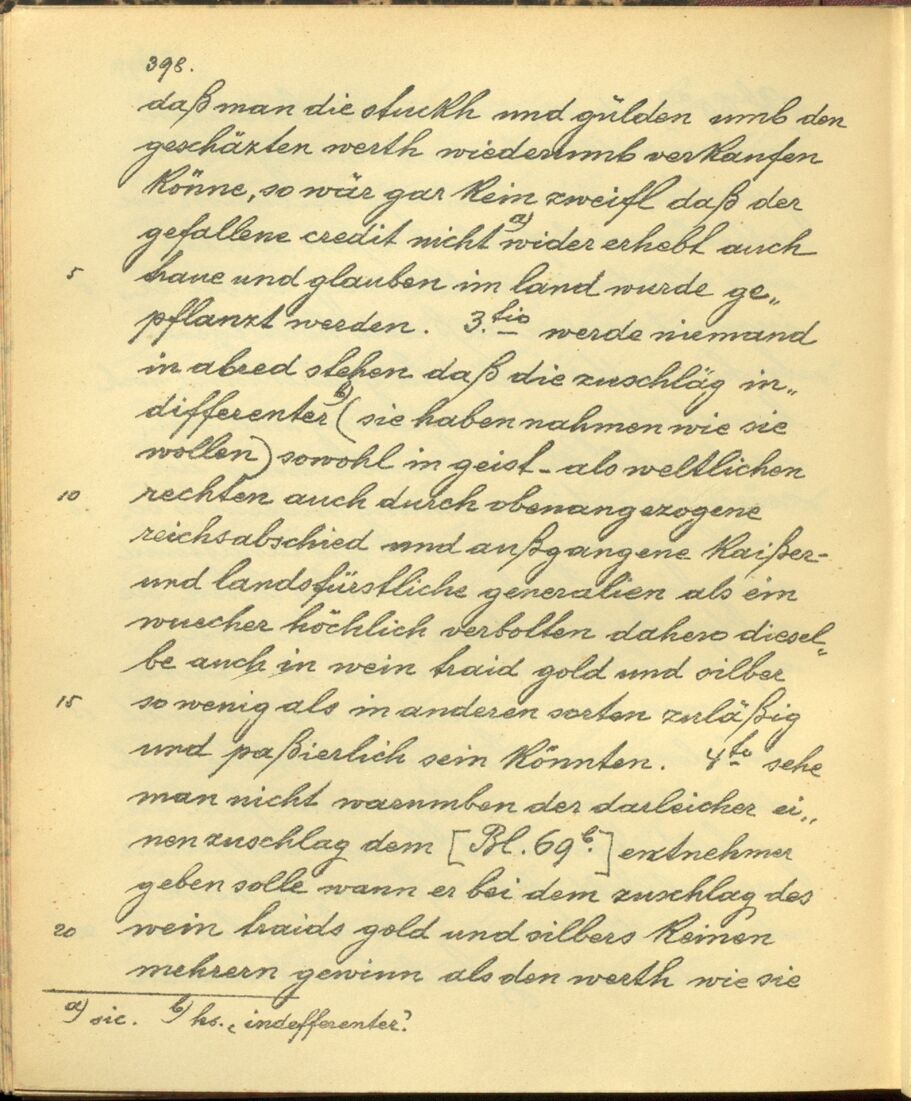 398.
daß man die stuckh und gülden umb den
geschäzten werth wiederumb verkaufen
könne, so wär gar kein zweifl daß der
gefallene credit nicht a) wider erhebt auch
5 traue und glauben im land wurde ge„
pflanzt werden. 3.tio werde niemand
in abred stehen daß die zueschläg in„
differenter b) (sie haben nahmen wie sie
wollen) sowohl in geist- als weltlichen
10 rechten auch durch obenangezogene
reichsabschied und außgangene kaißer-
und landsfürstliche generalien als ein
wuecher höchlich verbotten dahero diesel„
be auch in wein traid gold und silber
15 so wenig als in anderen sorten zuläßig
und paßierlich sein könnten. 4te sehe
man nicht warumben der darleicher ei„
nen zuschlag dem [Bl. 69b.] entnehmer
geben solle wann er bei dem zuschlag des
20 wein traids gold und silbers keinen
mehrern gewinn als den werth wie sie
a) sic. b) hs. „indefferenter?